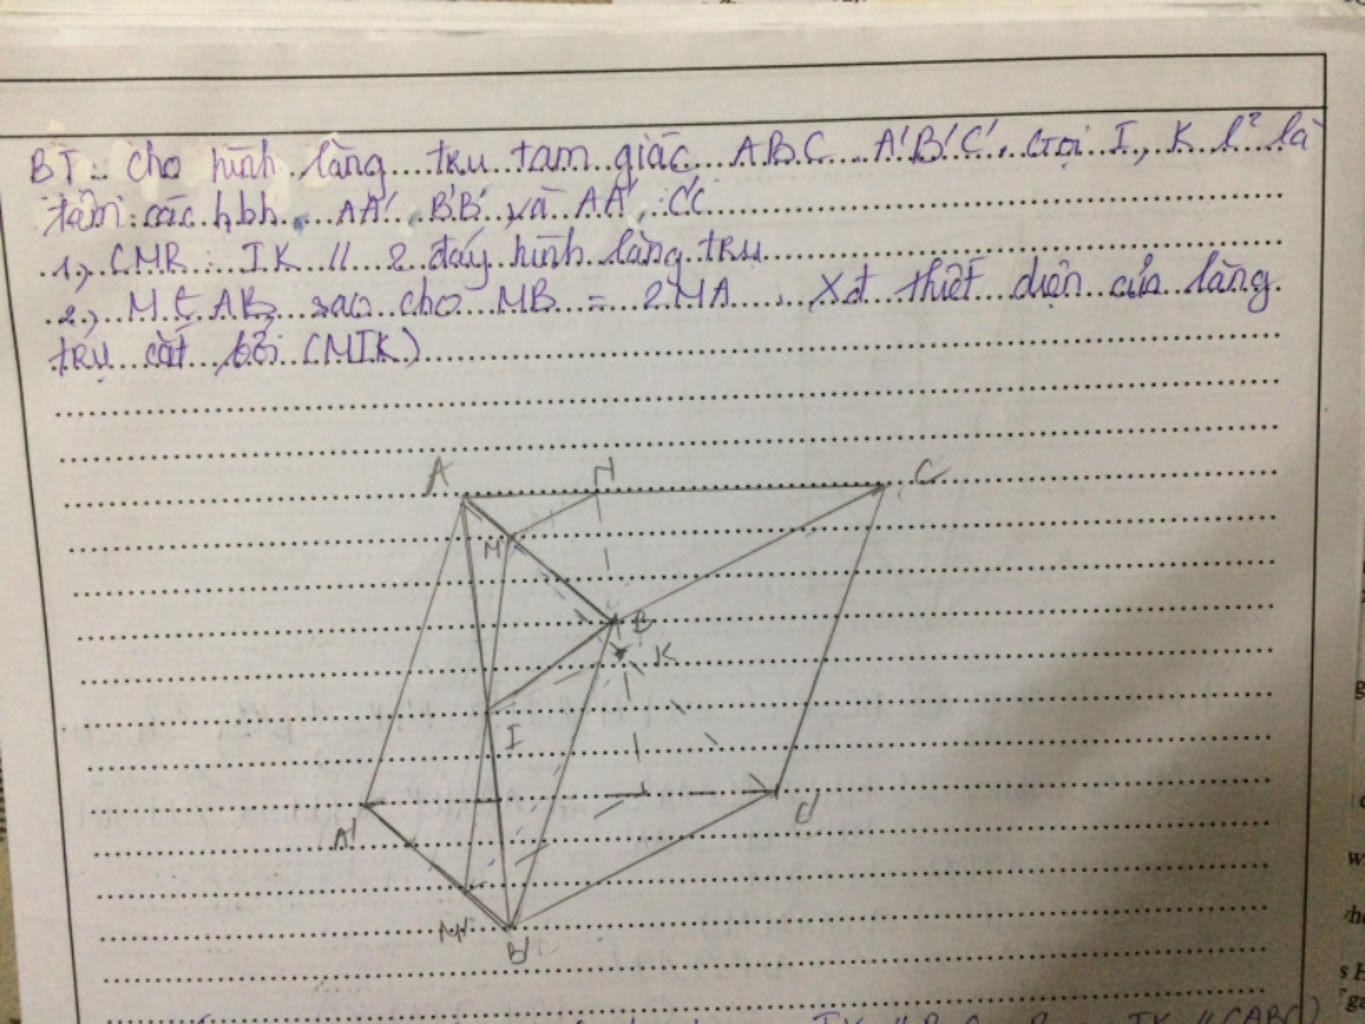 BT: Cho hình lăng trụ tam giác ABC A'B'C'. Gọi I, K l² là
tâm các hbh AA' B'B và AA' C'C
1, CMR: IK // 2 đáy hình lăng trụ
2, M ∈ AB, sao cho MB = 2MA. Xđ thiết diện của lăng
trụ cắt bởi (MIK)
A N C
M
B
K
I
A' C'
M'
B'